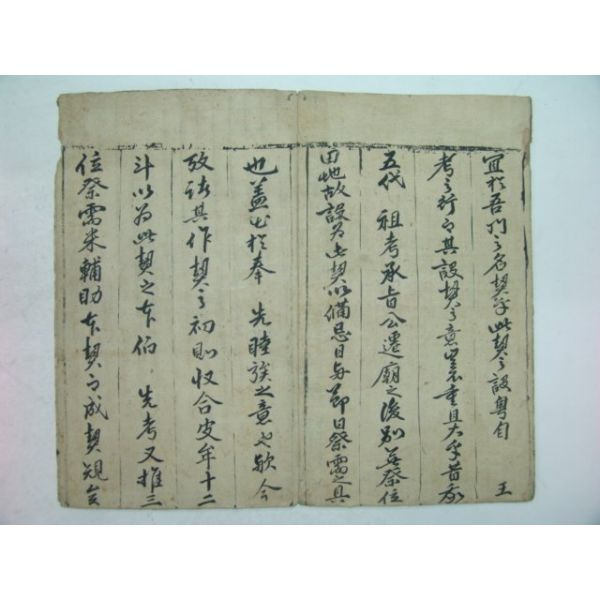 宜於吾門之名契乎此契之設粤自 王
考之行而其設契之意豈不重且大乎昔我
五代 祖考承旨公遷廟之後別無祭位
田地故設為此契以備忌日與節日祭需之具
也盖出於奉 先睦族之意也歟今
攷諸其作契之初則收合皮牟十二
斗以為此契之本伯 先考又推三
位祭需米輔助本契而成契規矣